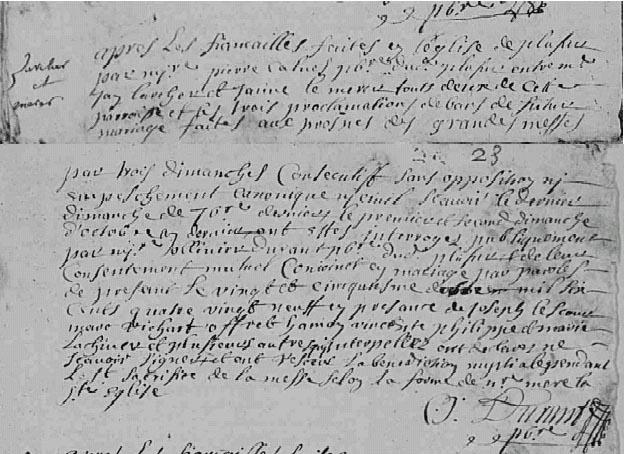 pbre
Larcher
et
merer
apres Les fiancailles faites en l'église de plusur
par mre pierre Calues pbre du plusur entre mr
Jan Larcher et Janne le merer touts deux de Cette
parroisse et Les trois proclamations de bans de futur
mariage faites aux prosnes des grandes messes
23
par trois dimanches Consecutiff sans opposition nj
empeschement Canonique njcivil scauoir le dernier
dimanche de 7bre dernier le premier et second dimanche
d'octobre en dernier ont estes Interroges publiquement
par mre ollivier durant pbre du plusur & de leur
Consentement mutuel Conioinct en mariage par parole
de present le vingt et cinquiesme mil six
cents quatre vingt neuff en presance de Joseph le
marc richart offret hamon vincente philippe & marie
et plusieurs autres interpelles ont declarés ne
scauoir signer et ont receus La benediction nuptiale pendant
Le st sacrifice de la messe selon La forme de nre mere la
ste église
O. Durant
pbre
apres Les fiancailles faites